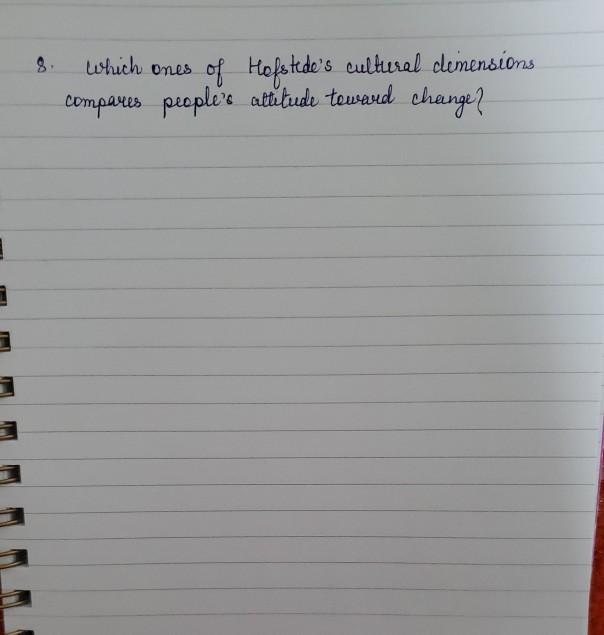 8. Which ones of Hofstede's cultural dimensions
compares people's attitude toward change?